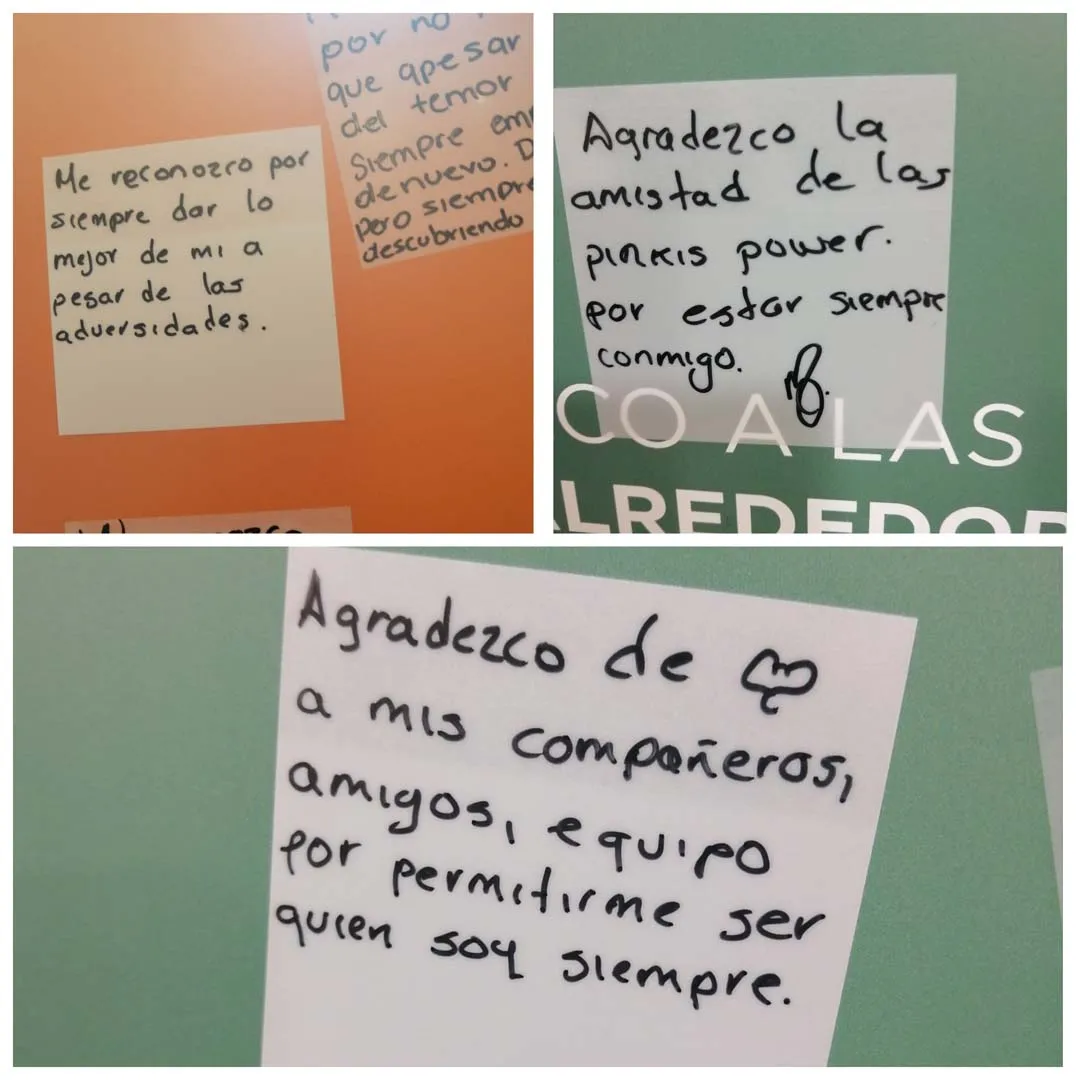 Me reconozco por
siempre dar lo
mejor de mi a
pesar de las
adversidades.
por no
que apesar
del temor
Siempre
de nuevo.
pero siempre
descubriendo
Agradezco la
amistad de las
pinkis power.
por estar siempre
conmigo.
CO A LAS
LREDEDOR
Agradezco de
a mis compañeros,
amigos, equipo
por permitirme ser
quien soy siempre.